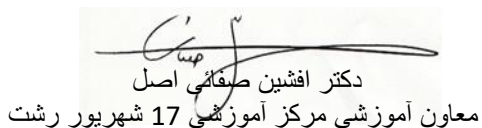 دکتر افشین صفائی اصل
معاون آموزشی مرکز آموزشی 17 شهریور رشت